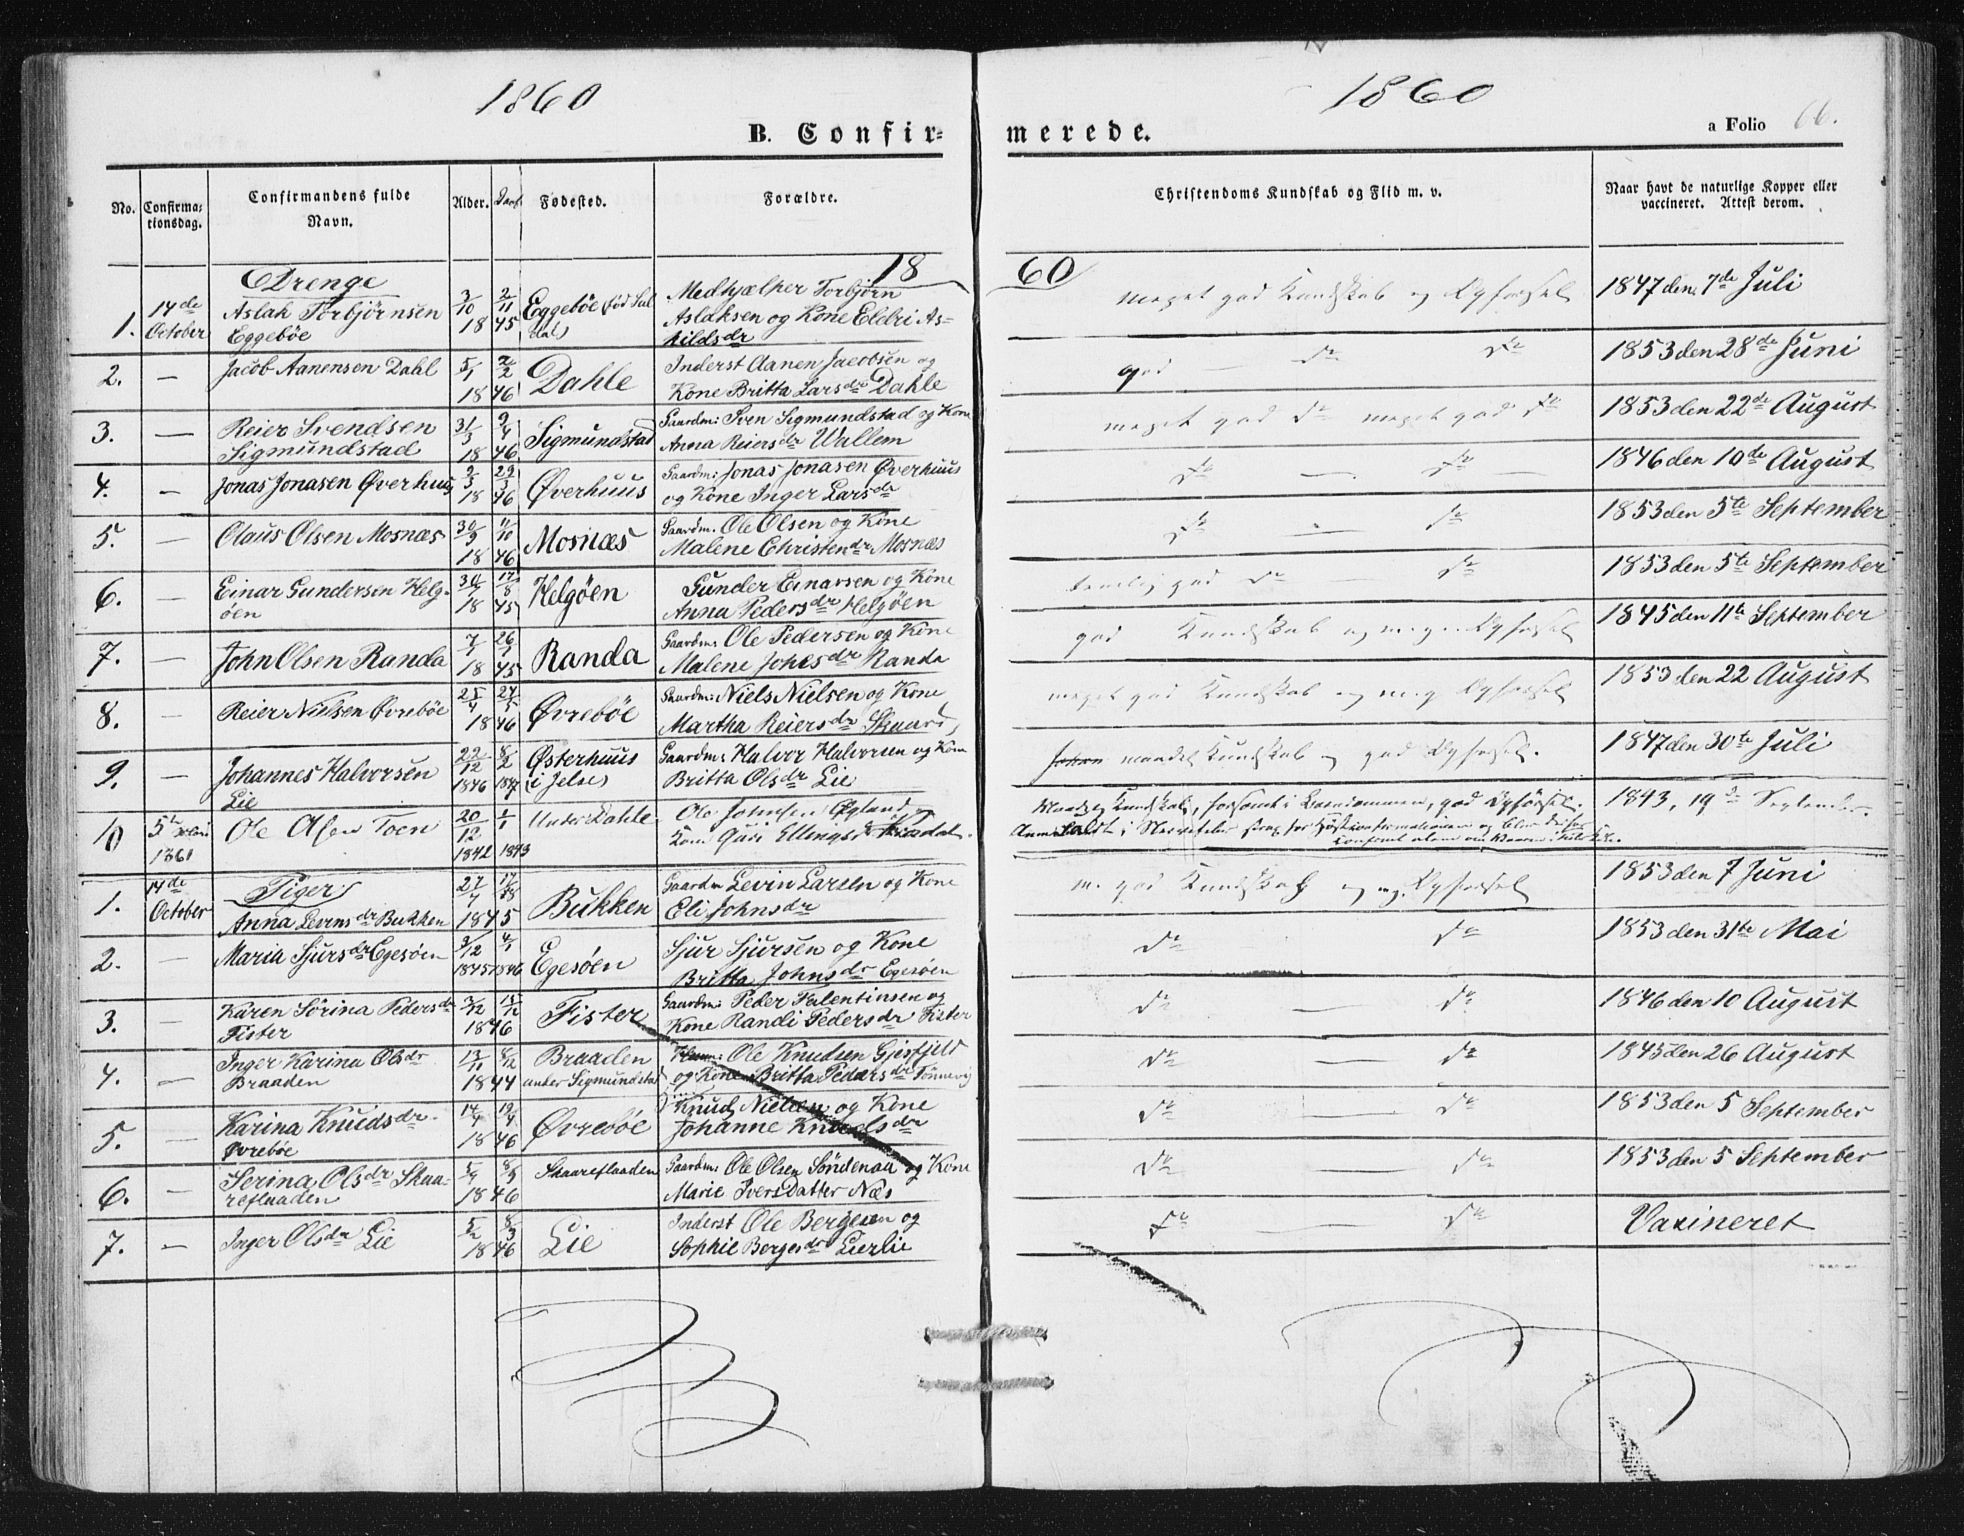 1860
1860
B. Confir-
merede.
a Folio 66.
No.
Confirma-
tionsdag.
Confirmandens fulde
Navn.
Alder.
Daab
Fødested.
Forældre.
Christendoms Kundskab og Flid m. v.
Naar havt de naturlige Kopper eller
vaccineret. Attest derom.
18
60
Drenge
1. 14de October Aslak Torbjørnsen
Eggebøe
3/10 2/11
18 45
Eggebøe (fød Sul
dal)
Medhjælper Torbjørn
Aslaksen og Kone Eldri As-
kildsdr
meget god Kundskab og Opførsel
1847 den 7de Juli
2. — Jacob Aanensen Dahl
5/1 2/2
18 46
Dahle
Inderst Aanen Jacobsen og
Kone Britta Larsdr Dahle
god — do do
1853 den 28de Juni
3. — Reier Svendsen
Sigmundstad
31/3 9/4
18 46
Sigmundstad
Gaardm: Sven Sigmundstad og Kone
Anna Reiersdr Wallem
meget god do meget god do
1853 den 22de August
4. — Jonas Jonasen Øverhuus
2/3 29/3
18 46
Øverhuus
Gaardm: Jonas Jonasen Øverhuus
og Kone Inger Larsdr
do — do —
1846 den 10de August
5. — Olaus Olsen Mosnæs
30/9 11/10
18 46
Mosnæs
Gaardm. Ole Olsen og Kone
Malene Christendr Mosnæs
do — do
1853 den 5te September
6. — Einar Gundersen Helg-
øen
30/7 17/8
18 45
Helgøen
Gunder Einarsen og Kone
Anna Pedersdr Helgøen
temlig god do do
1853 den 5te September
7. — John Olsen Randa
7/1 26/1
18 45
Randa
Gaardm: Ole Pedersen og Kone
Malene Johesdr Randa
god Kundskab og megen Opførsel
1845 den 11te September
8. — Reier Nielsen Øvrebøe
25/4 27/5
18 46
Øvrebøe
Gaardm: Niels Nielsen og Kone
Martha Reiersdr Skaar
meget god Kundskab og meg Opførsel
1853 den 22 August
9. — Johannes Halvorsen
Lie
22/12 8/2
1846 1847
Østerhuus
(i Jelse)
Gaardm: Halvor Halvorsen og Kone
Britta Olsdr Lie
maadel Kundskab og god Opførsel.
1847 den 30te Juli
10 5te 1861 Ole Olsen Toen
20/12 1/1
1842 1843
Under Dahle
Ole Johnsen Øgland
Kone Guri Ellingsdr
Kundskab, forsømt i , god Opførsel.
1843, 19de September
Piger
1. 14de October
Anna Levinsdr Bukken
27/7 17/8
1845
Bukken
Gaardm Levin Larsen og Kone
Eli Johnsdr
m. god Kundskab og meg. Opførsel
1853 den 7 Juni
2. — Maria Sjursdr Egesøen
3/12 4/1
1845 1846
Egesøen
Sjur Sjursen og Kone
Britta Johnsdr Egesøen
do do
1853 den 31te Mai
3. — Karen Sørina Pedersdr
Fister
3/12 15/12
1846
Fister
Gaardm: Peder Falentinsen og
Kone Randi Pedersdr Fister
do — do
1846 den 10 August
4. — Inger Karina Olsdr
Braaden
13/11 8/12
1844
Braaden
under Sigmundstad
Ole Knudsen Gjesfjeld
og Kone Britta Pedersdr Tønnevig
do — do
1845 den 26 August
5. — Karina Knudsdr
Øvrebøe
14/4 19/4
18 46
Øvrebøe
Knud Nielsen og Kone
Johanne Knudsdr
do — do
1853 den 5 September
6. — Serina Olsdr Skaa-
reflaaden
5/4 8/5
18 46
Skaareflaaden
Gaardm: Ole Olsen Søndenaa og Kone
Marie Ivers Datter Næs
do — do
1853 den 5 September
7. — Inger Olsdr Lie
5/2 8/3
18 46
Lie
Inderst Ole Bergesen og
Sophie Bergesdr Lierlie
do — do
Vaxineret